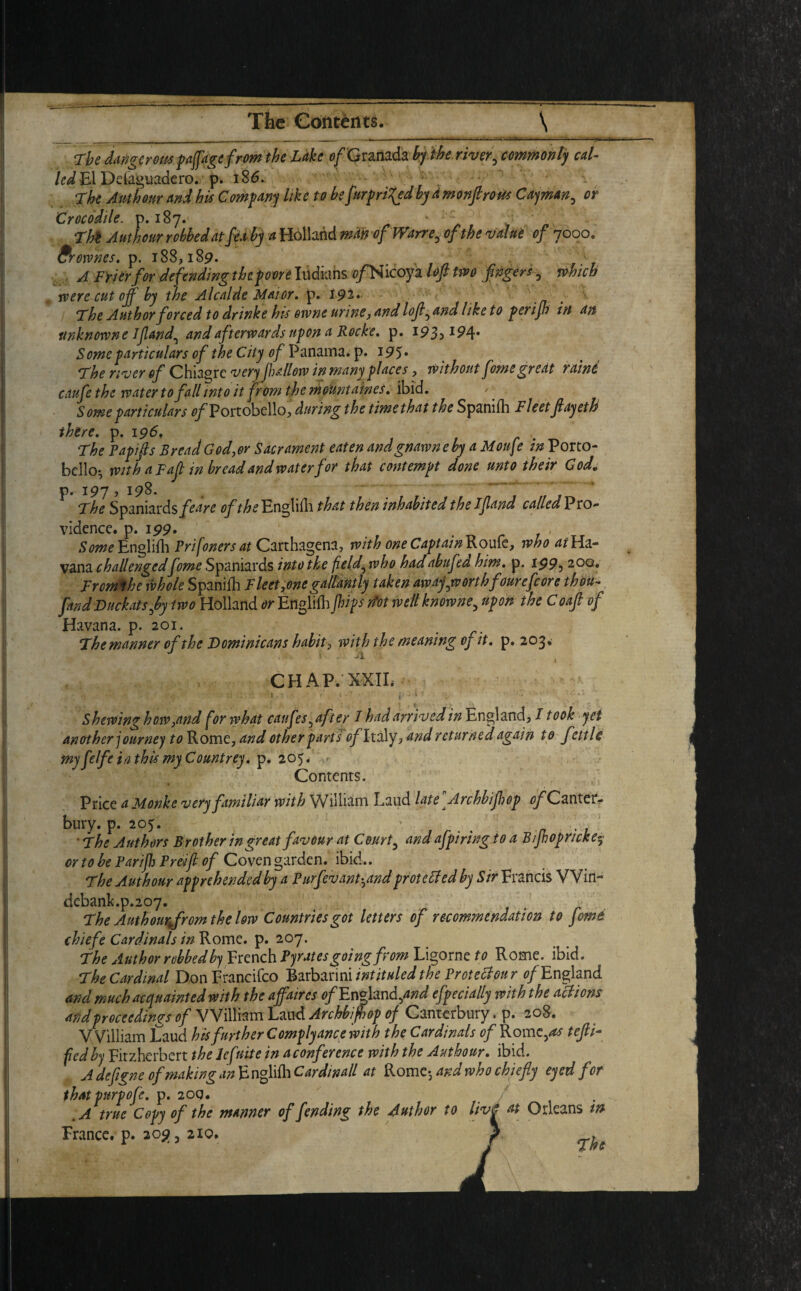 The Contents.
The dangerous passage from the Lake of Granada by the river, commonly cal-
led El Desaguadero. p. 186.
The Authour and his Company like to be surpriZed by a monstrous Cayman, or
Crocodile. p. 187.
The Authour robbed at sea by a Holland man of Warre, of the value of 7000.
Crownes. p. 188, 189.
A Frier for defending the poore Indians of Nicoya lost two fingers, which
were cut off by the Alcalde Maior. p. 192.
The Author forced to drinke his owne urine, and lost, and like to perish in an
unknowne Island, and afterwards upon a Rocke. p. 193, 194.
Some particulars of the City of Panama. p. 195.
The river of Chiagre very shallow in many places, without some great raine
cause the water to fall into it from the mountaines. ibid.
Some particulars of Portobello, during the time that the Spanish Fleet stayeth
there. p. 196.
The Papists Bread God, or Sacrament eaten and gnawne by a Mouse in Porto-
bello; with a Fast in bread and water for that contempt done unto their God.
p. 197, 198.
The Spaniards feare of the English that then inhabited the Island called Pro-
vidence. p. 199.
Some English Prisoners at Carthagena, with one Captain Rouse, who at Ha-
vana challenged some Spaniards into the field, who had abused him. p. 199, 200.
From the whole Spanish Fleet, one gallantly taken away, worth foure score thou-
sand Duckats, by two Holland or English ships not well knowne, upon the Coast of
Havana. p. 201.
The manner of the Dominicans habit, with the meaning of it. p. 203.
CHAP. XXII.
Shewing how, and for what causes, after I had arrived in England, I took yet
another journey to Rome, and other parts of Italy, and returned again to settle
my selfe in this my Countrey. p. 205.
Contents.
Price a Monke very familiar with William Laud late Archbishop of Canter-
bury. p. 205.
The Authors Brother in great favour at Court, and aspiring to a Bishopricke;
or to be Parish Preist of Coven garden. ibid..
The Authour apprehended by a Pursevant; and protected by Sir Francis Win-
debank. p. 207.
The Authour, from the low Countries got letters of recommendation to some
chiefe Cardinals in Rome. p. 207.
The Author robbed by French Pyrates going from Ligorne to Rome. ibid.
The Cardinal Don Francisco Barbarini intituled the Protectour of England
and much acquainted with the affaires of England, and especially with the actions
and proceedings of William Laud Archbishop of Canterbury. p. 208.
William Laud his further Complyance with the Cardinals of Rome, as testi-
fied by Fitzherbert the Iesuite in a conference with the Authour. ibid.
A designe of making an English Cardinall at Rome; and who chiefly eyed for
that purpose. p. 209.
A true Copy of the manner of sending the Author to live at Orleans in
France. p. 209, 210.
The